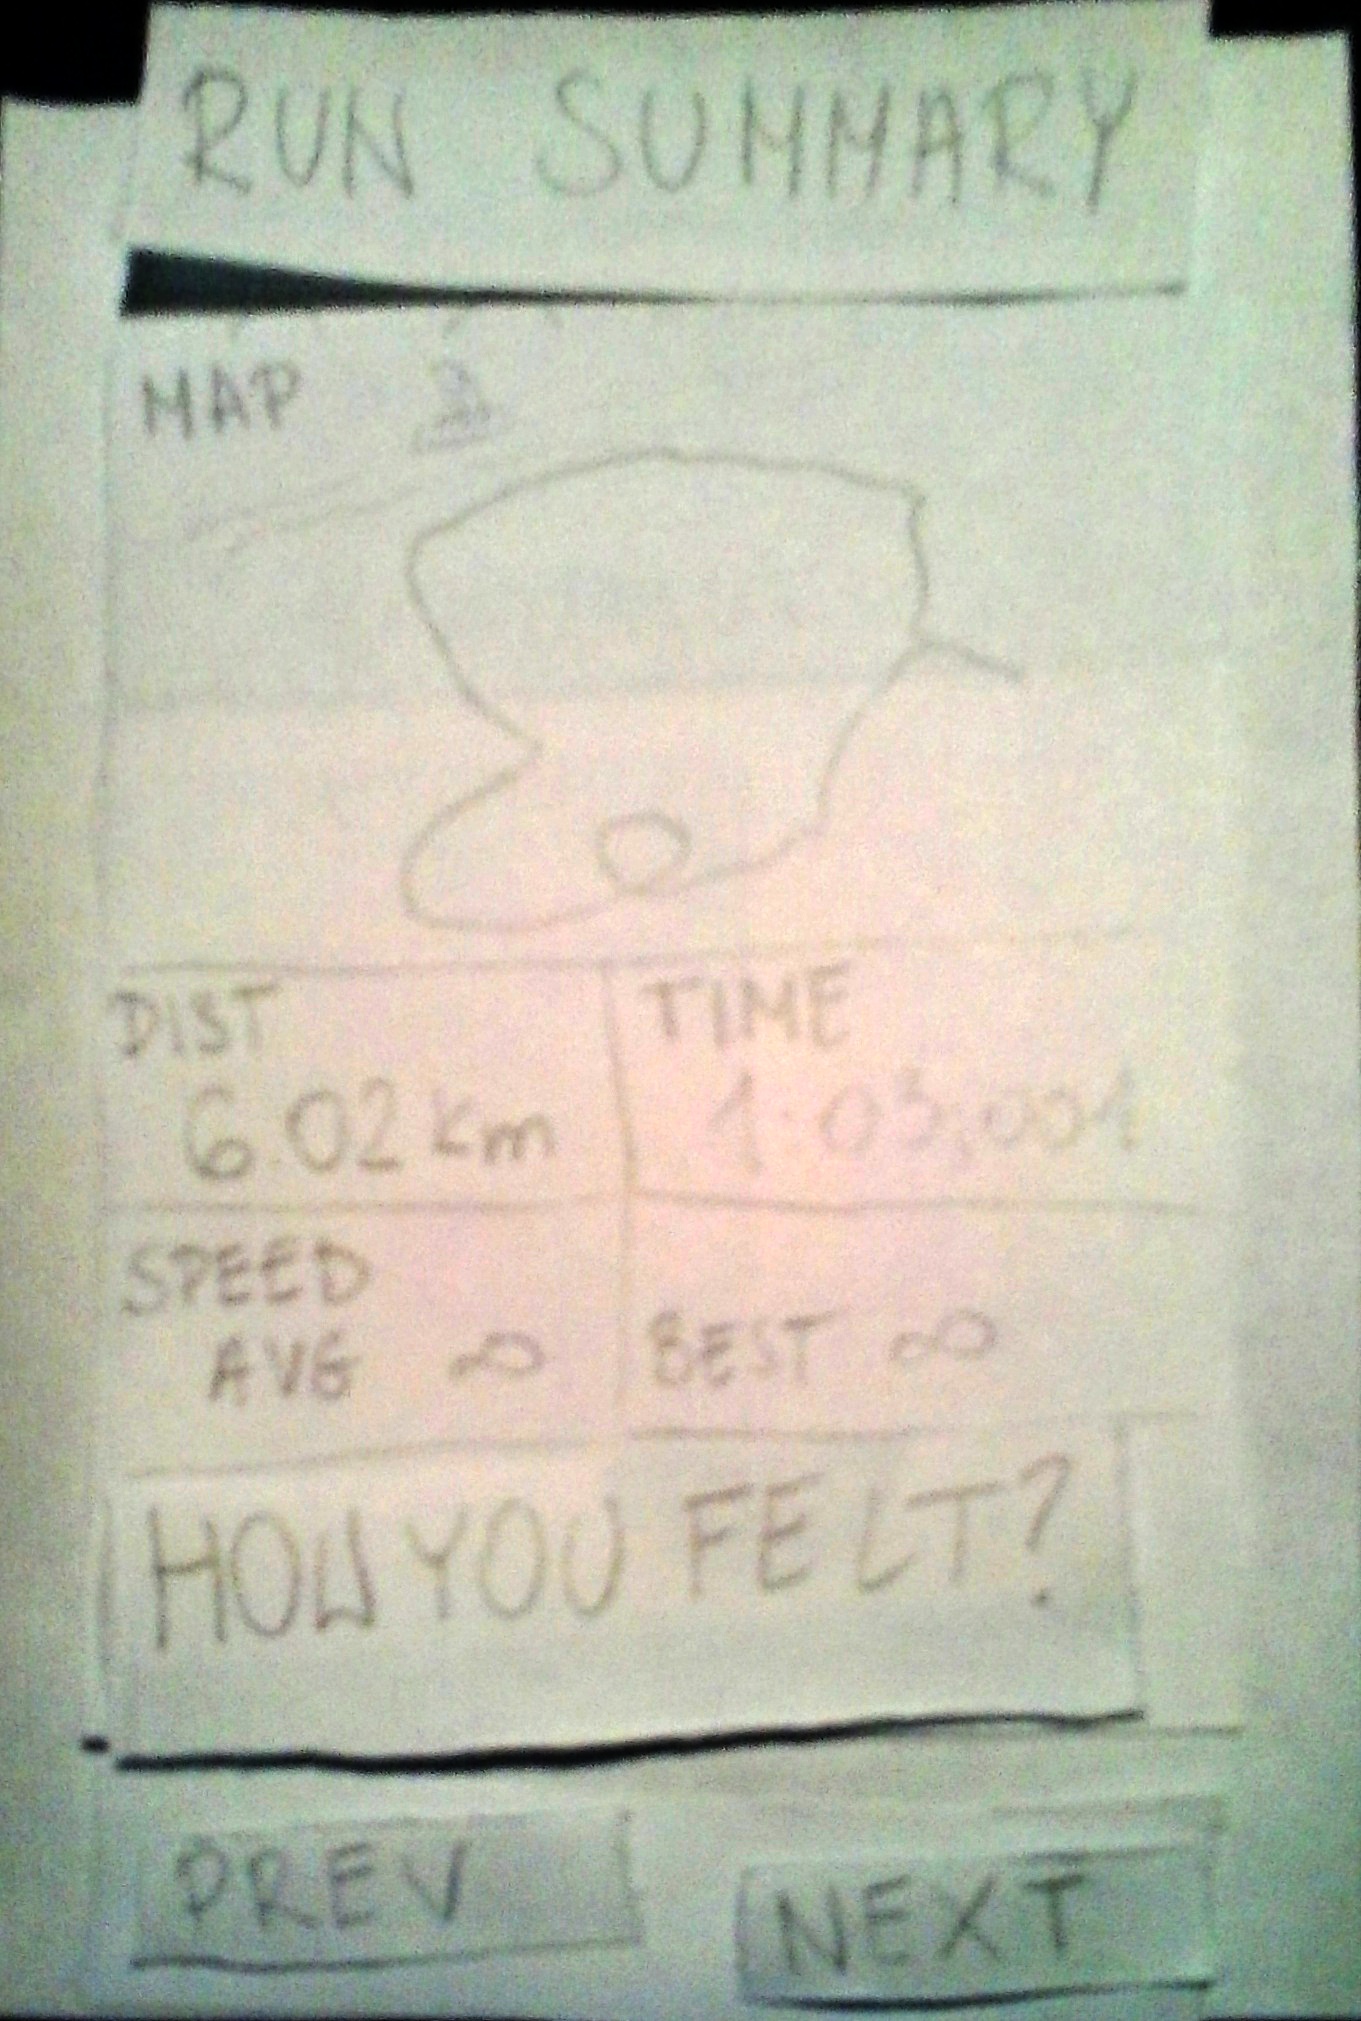 RUN SUMMARY
MAP
DIST
6.02 km
TIME
1:03,001
SPEED
AVG ∞
BEST ∞
HOW YOU FELT?
PREV
NEXT